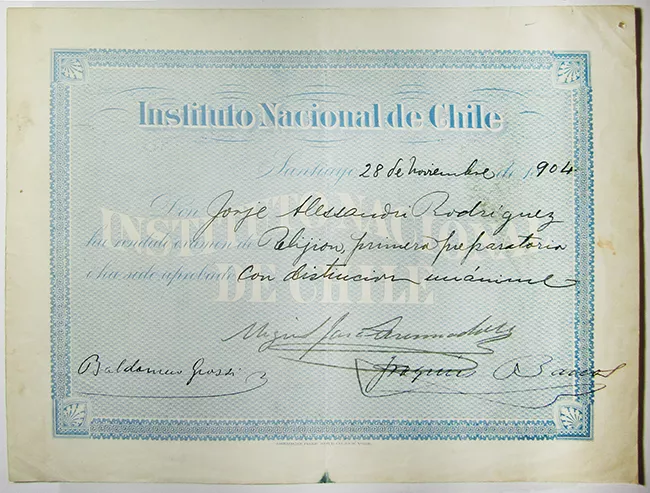 Instituto Nacional de Chile
Santiago 28 de Noviembre de 1904
Don Jorje Alessandri Rodríguez
ha rendido exámen de Relijion, primera preparatoria
i ha sido aprobado con distincion unánime
INSTITUTO NACIONAL
DE CHILE
Miguel
Baldomero Grossi
Joaquin